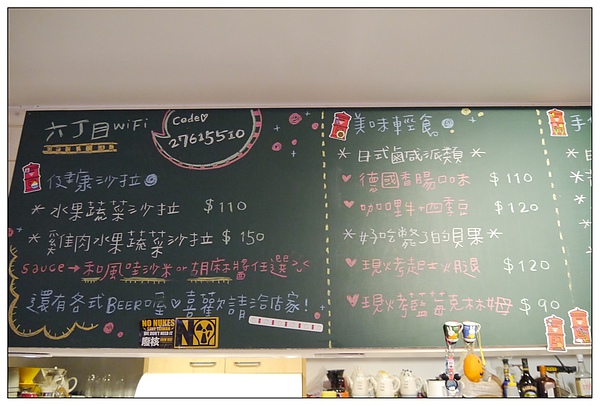 六丁目 WiFi
Code♡
27615510
健康沙拉
*水果蔬菜沙拉 $110
*雞肉水果蔬菜沙拉 $150
sauce→和風哇沙米 or 胡麻醬任選
還有各式BEER喔♡喜歡請洽店家!
美味輕食
*日式鹹派類*
♥德國香腸口味 $110
♥咖哩牛+四季豆 $120
*好吃斃了的貝果*
♥現烤起士火腿 $120
♥現烤藍莓克林姆 $90
手
NO NUKES
廢核
NO